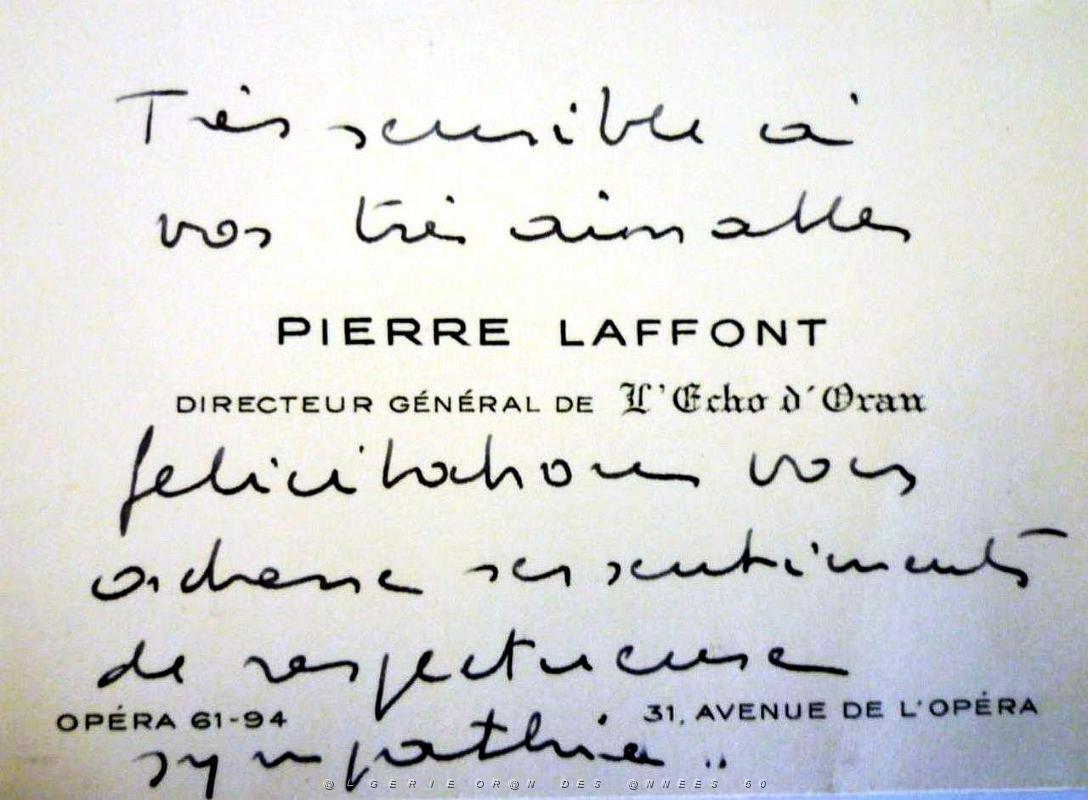 Très sensible à
vos très aimables
PIERRE LAFFONT
DIRECTEUR GÉNÉRAL DE L'Echo d'Oran
félicitations vous
adresse ses sentiments
de respectueuse
OPÉRA 61-94 31, AVENUE DE L'OPÉRA
sympathie..
@LGERIE OR@N DES @NNEES 50